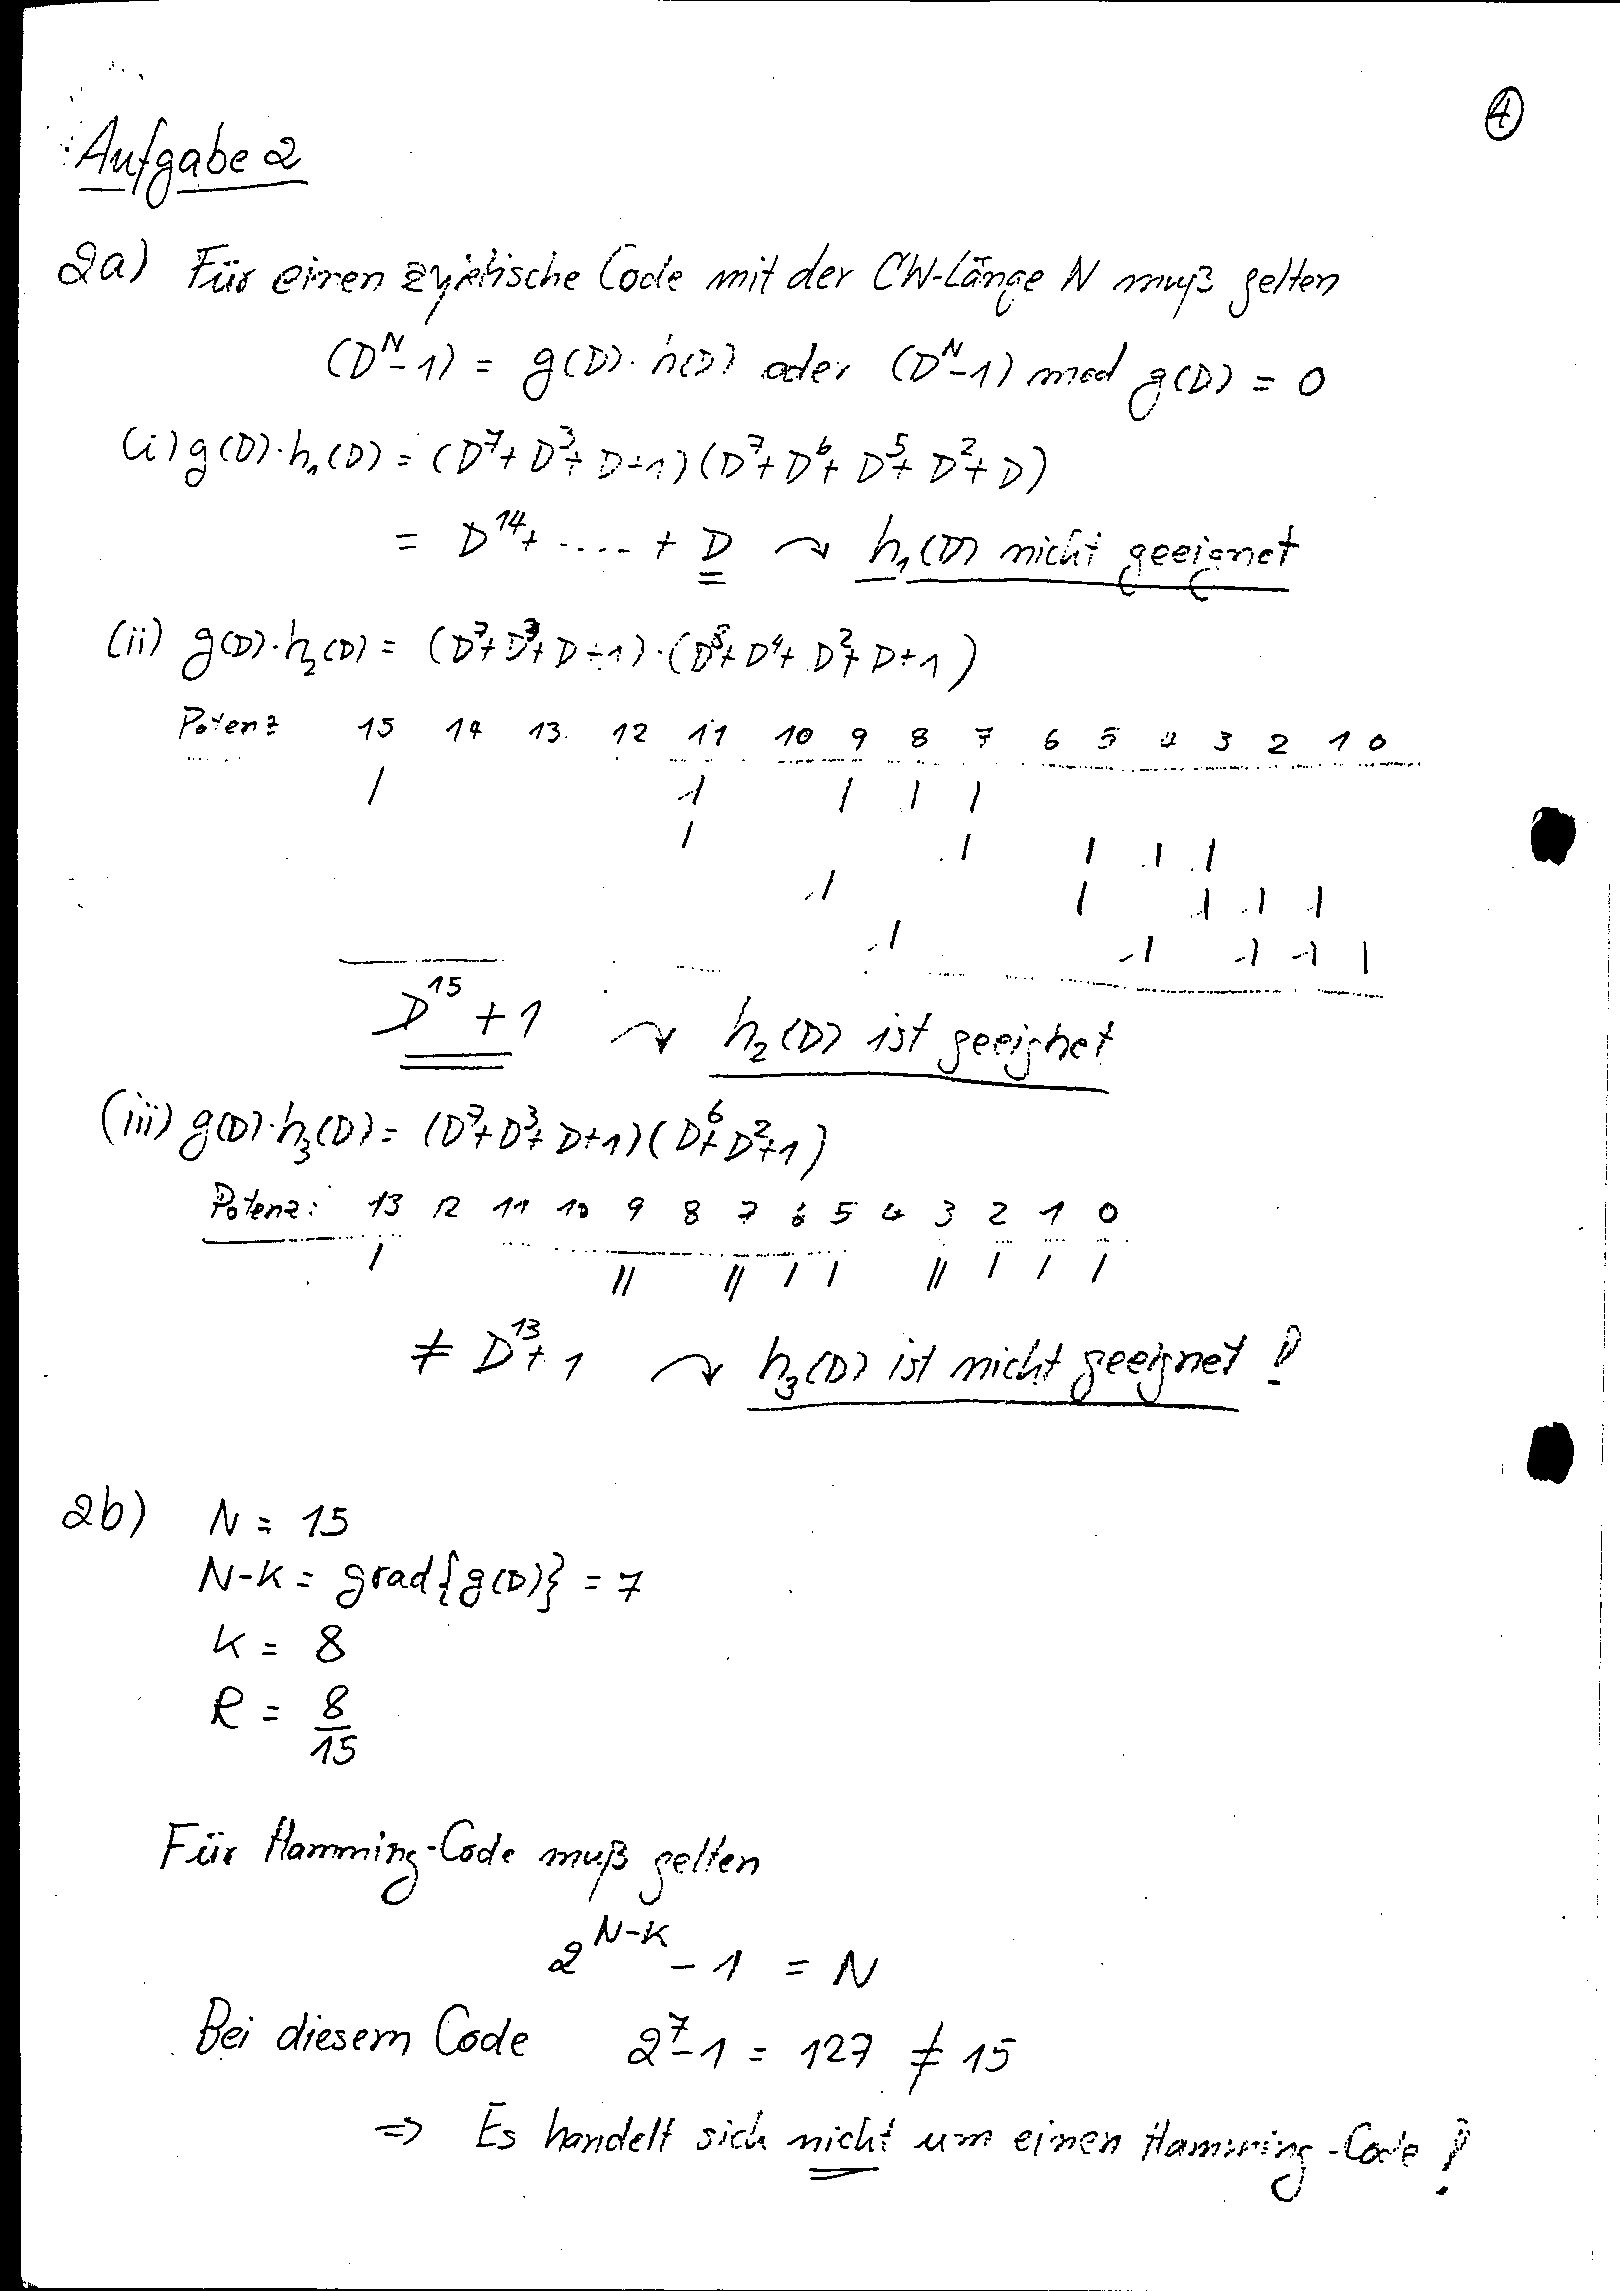 ④
Aufgabe 2
2a) Für einen zyklische Code mit der CW-Länge N muß gelten
(D^N - 1) = g(D) · h(D) oder (D^N - 1) mod g(D) = 0
(i) g(D) · h₁(D) = (D⁷ + D³ + D + 1) (D⁷ + D⁶ + D⁵ + D² + D)
= D¹⁴ + ..... + D ↷ h₁(D) nicht geeignet
(ii) g(D) · h₂(D) = (D⁷ + D³ + D + 1) · (D⁸ + D⁴ + D² + D + 1)
Potenz 15 14 13 12 11 10 9 8 7 6 5 4 3 2 1 0
1 1 1 1 1
1 1 1 1 1
1 1 1 1 1
1 1 1 1 1
D¹⁵ + 1 ↷ h₂(D) ist geeignet
(iii) g(D) · h₃(D) = (D⁷ + D³ + D + 1) (D⁶ + D² + 1)
Potenz: 13 12 11 10 9 8 7 6 5 4 3 2 1 0
| || || | | || | | |
≠ D¹³ + 1 ↷ h₃(D) ist nicht geeignet !
2b) N = 15
N-K = grad{g(D)} = 7
K = 8
R = 8/15
Für Hamming-Code muß gelten
2^(N-K) - 1 = N
Bei diesem Code 2⁷ - 1 = 127 ≠ 15
⇒ Es handelt sich nicht um einen Hamming-Code !